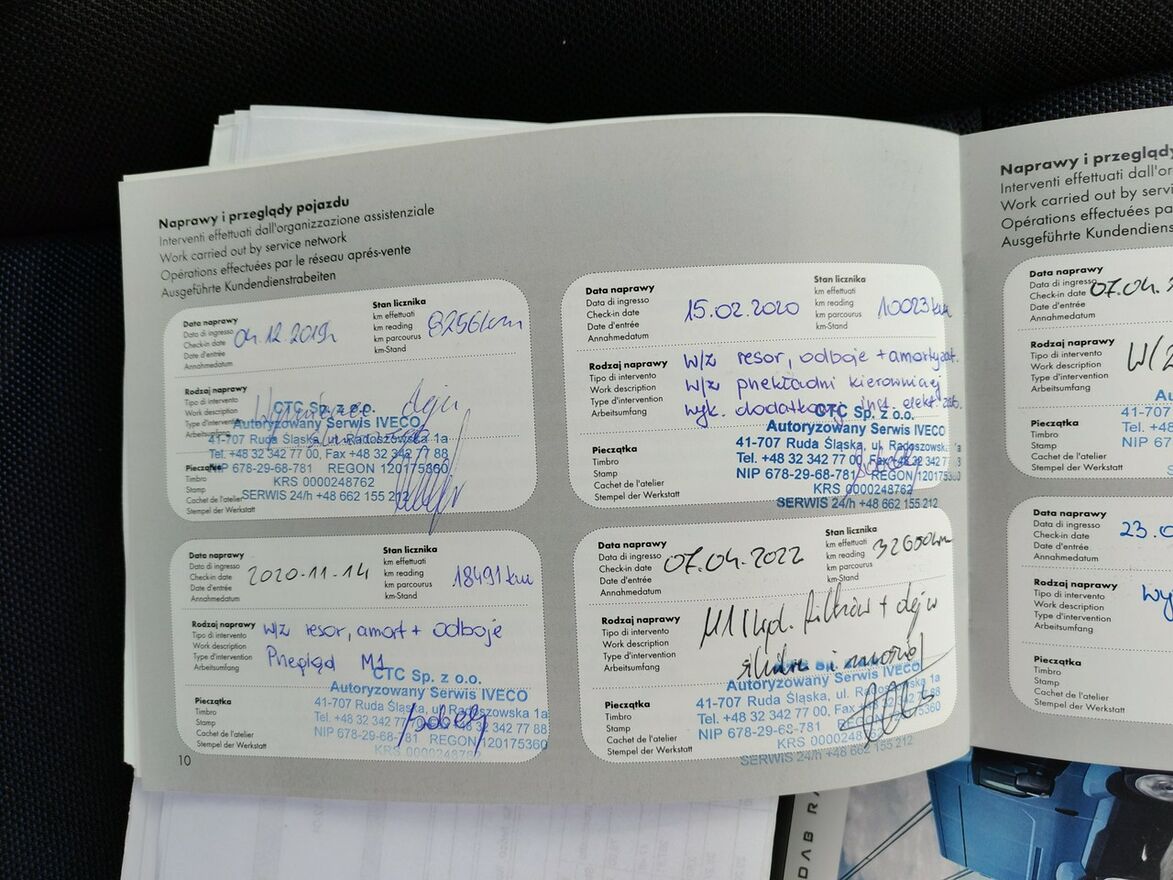 Naprawy i przeglądy pojazdu
Interventi effettuati dall'organizzazione assistenziale
Work carried out by service network
Opérations effectuées par le réseau aprés-vente
Ausgeführte Kundendienstrabeiten
Data naprawy
Data di ingresso
Check-in date
Date d'entrée
Annahmedatum
04.12.2019r
Stan licznika
km effettuati
km reading
km parcourus
km-Stand
8256km
Rodzaj naprawy
Tipo di intervento
Work description
Type d'intervention
Arbeitsumfang
oleju
Pieczątka
Timbro
Stamp
Cachet de l'atelier
Stempel der Werkstatt
CTC Sp. z o.o.
Autoryzowany Serwis IVECO
41-707 Ruda Śląska, ul. Radoszowska 1a
Tel. +48 32 342 77 00, Fax +48 32 342 77 88
NIP 678-29-68-781 REGON 120175360
KRS 0000248762
SERWIS 24/h +48 662 155 212
Data naprawy
Data di ingresso
Check-in date
Date d'entrée
Annahmedatum
15.02.2020
Stan licznika
km effettuati
km reading
km parcourus
km-Stand
10023km
Rodzaj naprawy
Tipo di intervento
Work description
Type d'intervention
Arbeitsumfang
w/z resor, odboje + amortyzat.
w/z przekładni kierowniczej
wyk. dodatkowej inst. elekt.
Pieczątka
Timbro
Stamp
Cachet de l'atelier
Stempel der Werkstatt
CTC Sp. z o.o.
Autoryzowany Serwis IVECO
41-707 Ruda Śląska, ul. Radoszowska 1a
Tel. +48 32 342 77 00, Fax +48 32 342 77
NIP 678-29-68-781 REGON 120175360
KRS 0000248762
SERWIS 24/h +48 662 155 212
Data naprawy
Data di ingresso
Check-in date
Date d'entrée
Annahmedatum
2020-11-14
Stan licznika
km effettuati
km reading
km parcourus
km-Stand
18491km
Rodzaj naprawy
Tipo di intervento
Work description
Type d'intervention
Arbeitsumfang
w/z resor, amort + odboje
Przegląd M1
Pieczątka
Timbro
Stamp
Cachet de l'atelier
Stempel der Werkstatt
CTC Sp. z o.o.
Autoryzowany Serwis IVECO
41-707 Ruda Śląska, ul. Radoszowska 1a
Tel. +48 32 342 77 00, Fax +48 32 342 77 88
NIP 678-29-68-781 REGON 120175360
KRS 0000248762
Data naprawy
Data di ingresso
Check-in date
Date d'entrée
Annahmedatum
07.04.2022
Stan licznika
km effettuati
km reading
km parcourus
km-Stand
32650km
Rodzaj naprawy
Tipo di intervento
Work description
Type d'intervention
Arbeitsumfang
M1 wyd. filtrów + oleju
silnik i
Pieczątka
Timbro
Stamp
Cachet de l'atelier
Stempel der Werkstatt
Autoryzowany Serwis IVECO
41-707 Ruda Śląska, ul. Radoszowska 1a
Tel. +48 32 342 77 00, Fax +48 32 342 77 88
NIP 678-29-68-781 REGON 120175360
KRS 0000248762
SERWIS 24/h +48 662 155 212
10
Naprawy i przeglądy
Interventi effettuati dall'or
Work carried out by servi
Opérations effectuées pa
Ausgeführte Kundendiens
Data naprawy
Data di ingresso
Check-in date
Date d'entrée
Annahmedatum
07.04.
Rodzaj naprawy
Tipo di intervento
Work description
Type d'intervention
Arbeitsumfang
W/Z
Pieczątka
Timbro
Stamp
Cachet de l'atelier
Stempel der Werkstatt
A
41-7
Tel. +
NIP 6
Data naprawy
Data di ingresso
Check-in date
Date d'entrée
Annahmedatum
23.0
Rodzaj naprawy
Tipo di intervento
Work description
Type d'intervention
Arbeitsumfang
wy
Pieczątka
Timbro
Stamp
Cachet de l'atelier
Stempel der Werkstatt
DAB RA